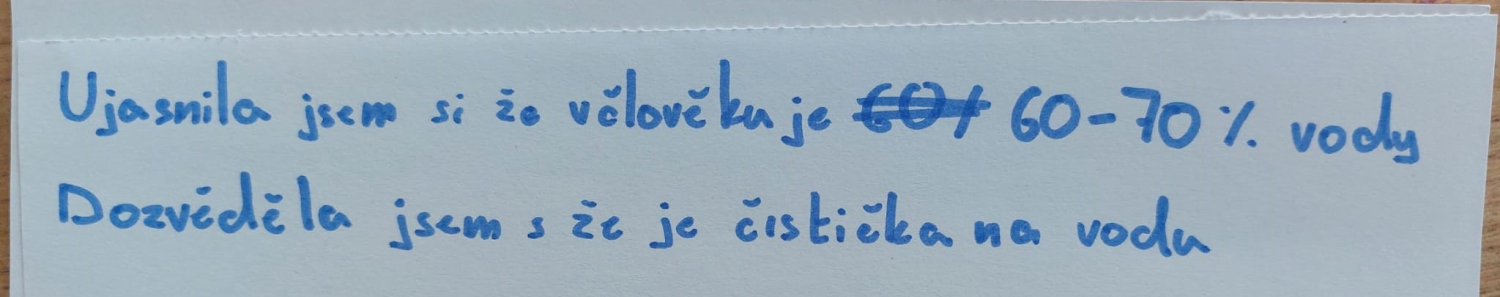 Ujasnila jsem si že včlověku je 60-70% vody
Dozvěděla jsem s že je čistička na vodu